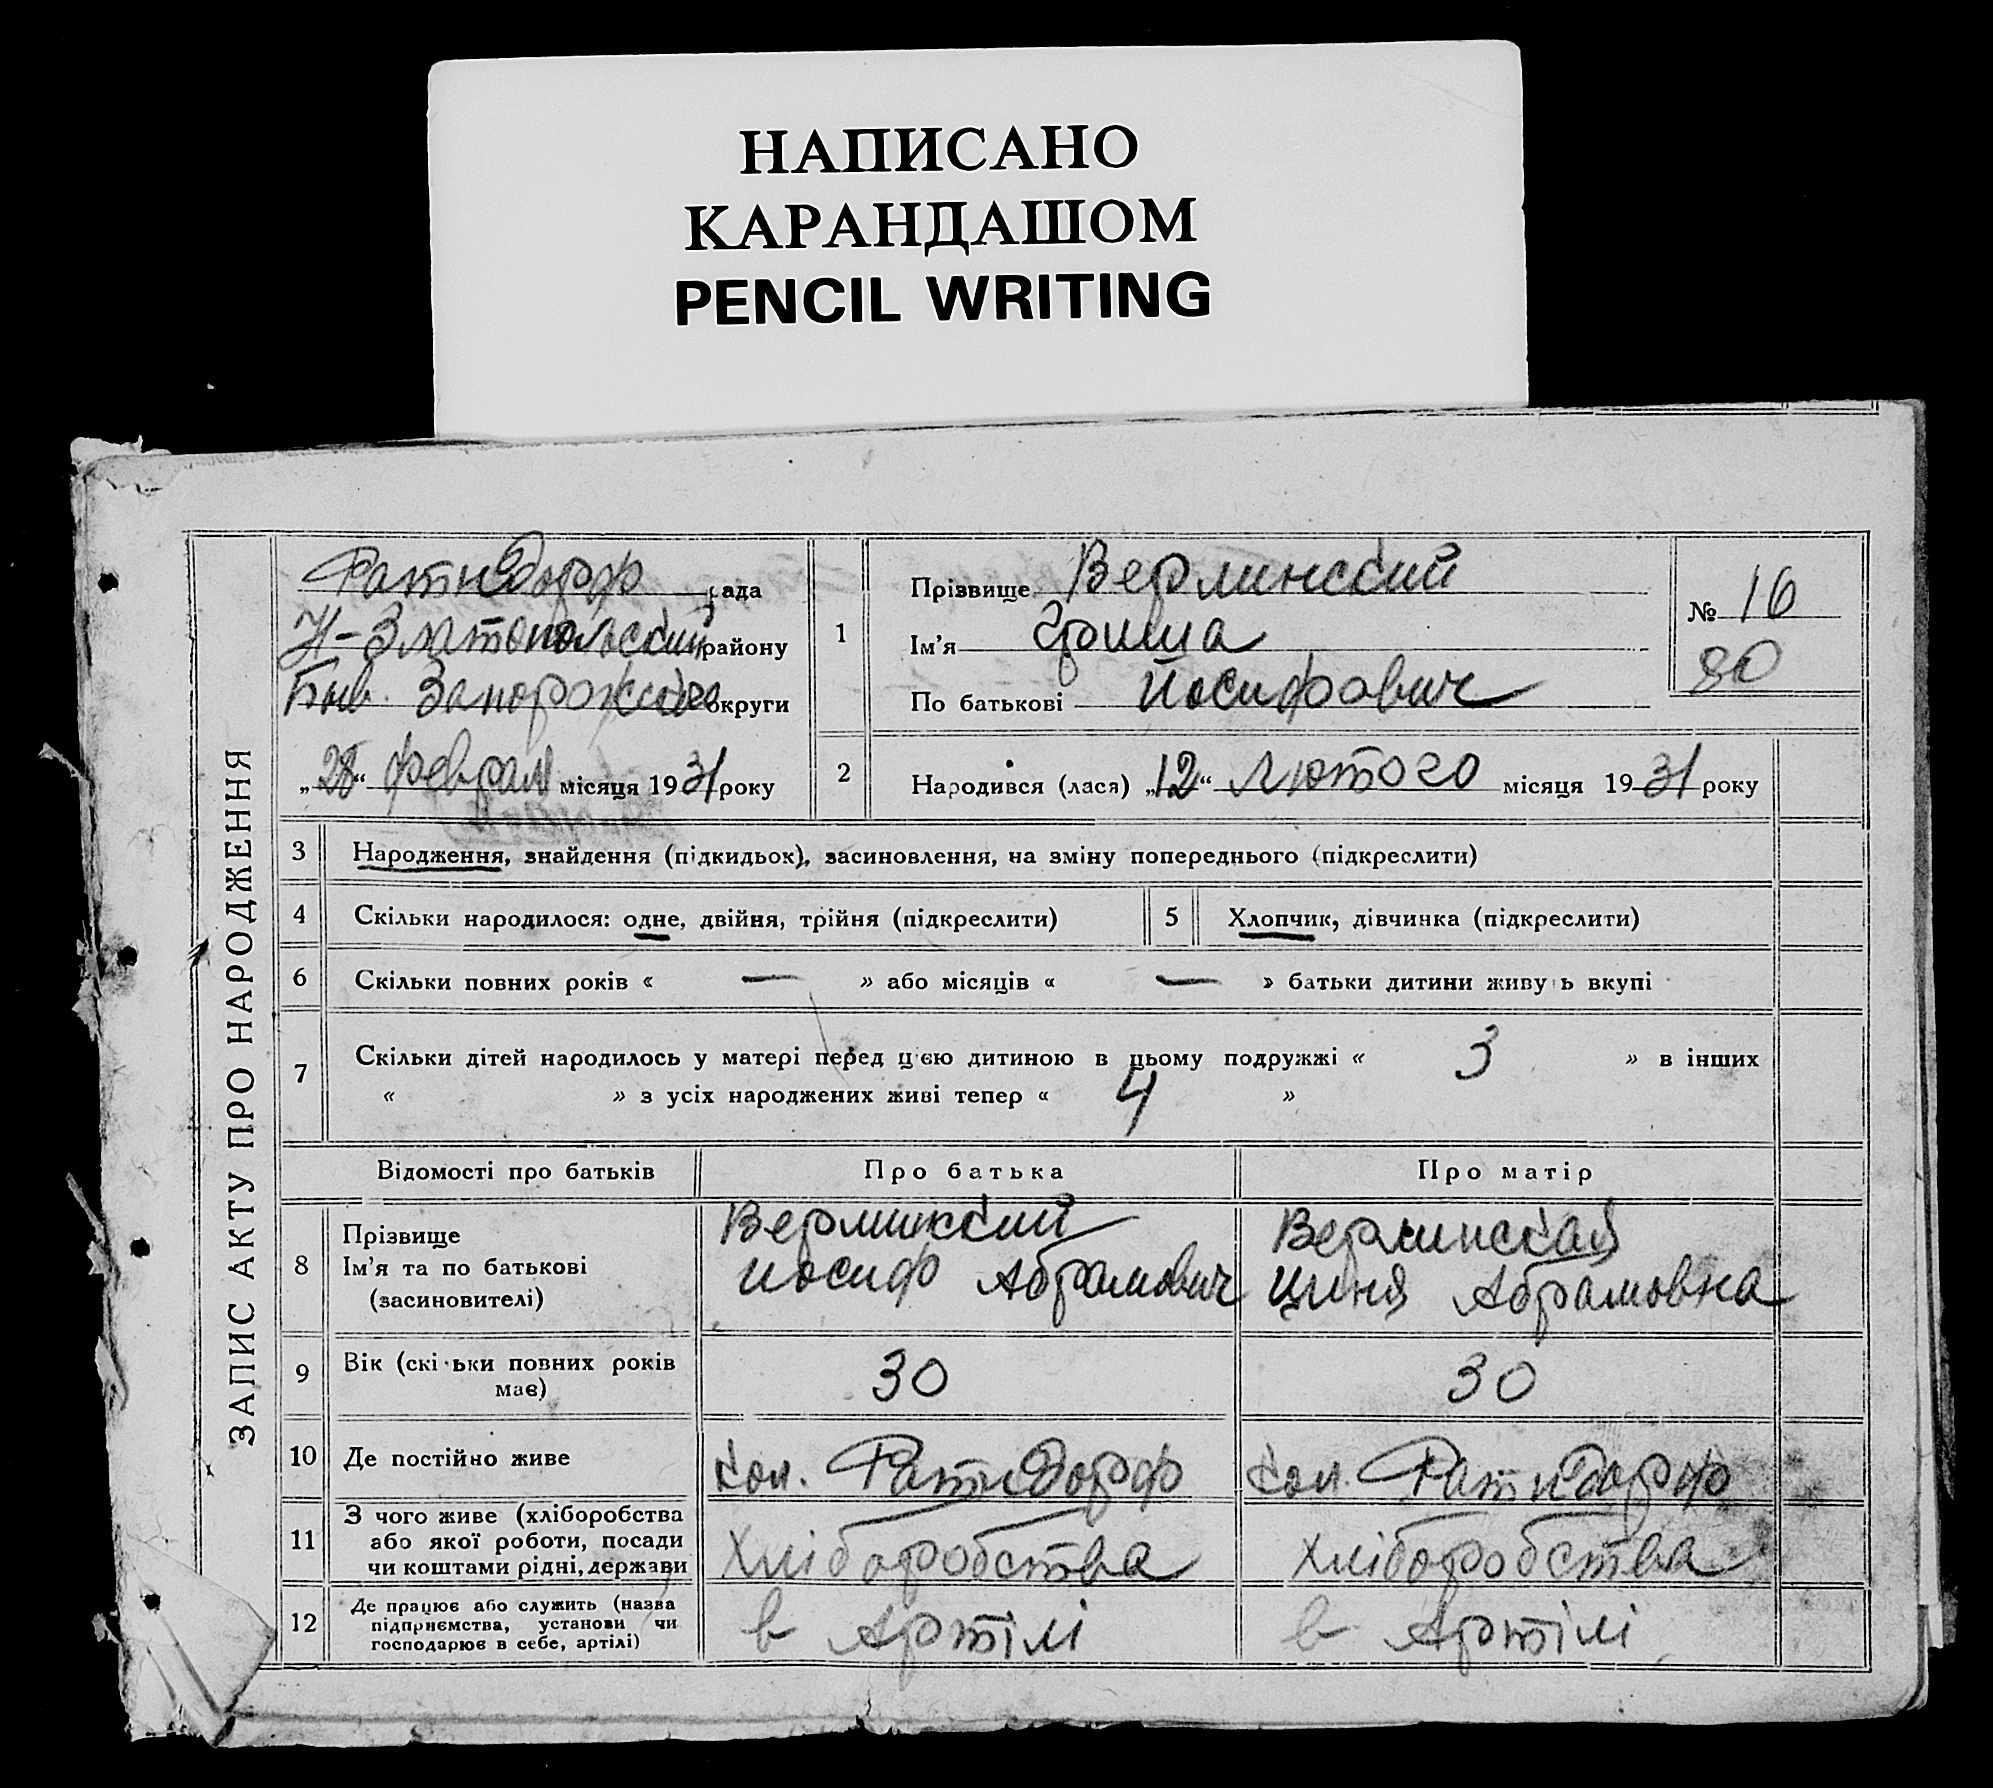 НАПИСАНО
КАРАНДАШОМ
PENCIL WRITING
ЗАПИС АКТУ ПРО НАРОДЖЕННЯ
Ратндорф рада
Н-Златопольский району
Быв. Запорожской округи
„28“ феврал місяця 1931 року
1
Прізвище Верлинский
Ім'я Гриша
По батькові Йосифович
№ 16
80
2
Народився (лася) „12“ лютого місяця 1931 року
3 Народження, знайдення (підкидьок), засиновлення, на зміну попереднього (підкреслити)
4 Скільки народилося: одне, двійня, трійня (підкреслити) 5 Хлопчик, дівчинка (підкреслити)
6 Скільки повних років « — » або місяців « — » батьки дитини живуть вкупі
7 Скільки дітей народилось у матері перед цією дитиною в цьому подружжі « 3 » в інших
« » з усіх народжених живі тепер « 4 »
Відомості про батьків Про батька Про матір
8 Прізвище
Ім'я та по батькові
(засиновителі)
Верлинский
Иосиф Абрамович
Верлинская
Циня Абрамовна
9 Вік (скільки повних років
має)
30 30
10 Де постійно живе кол. Ратндорф кол. Ратндорф
11 З чого живе (хліборобства
або якої роботи, посади
чи коштами рідні, держави
Хліборобства Хліборобства
12 Де працює або служить (назва
підприємства, установи чи
господарює в себе, артілі)
в Артілі в Артілі